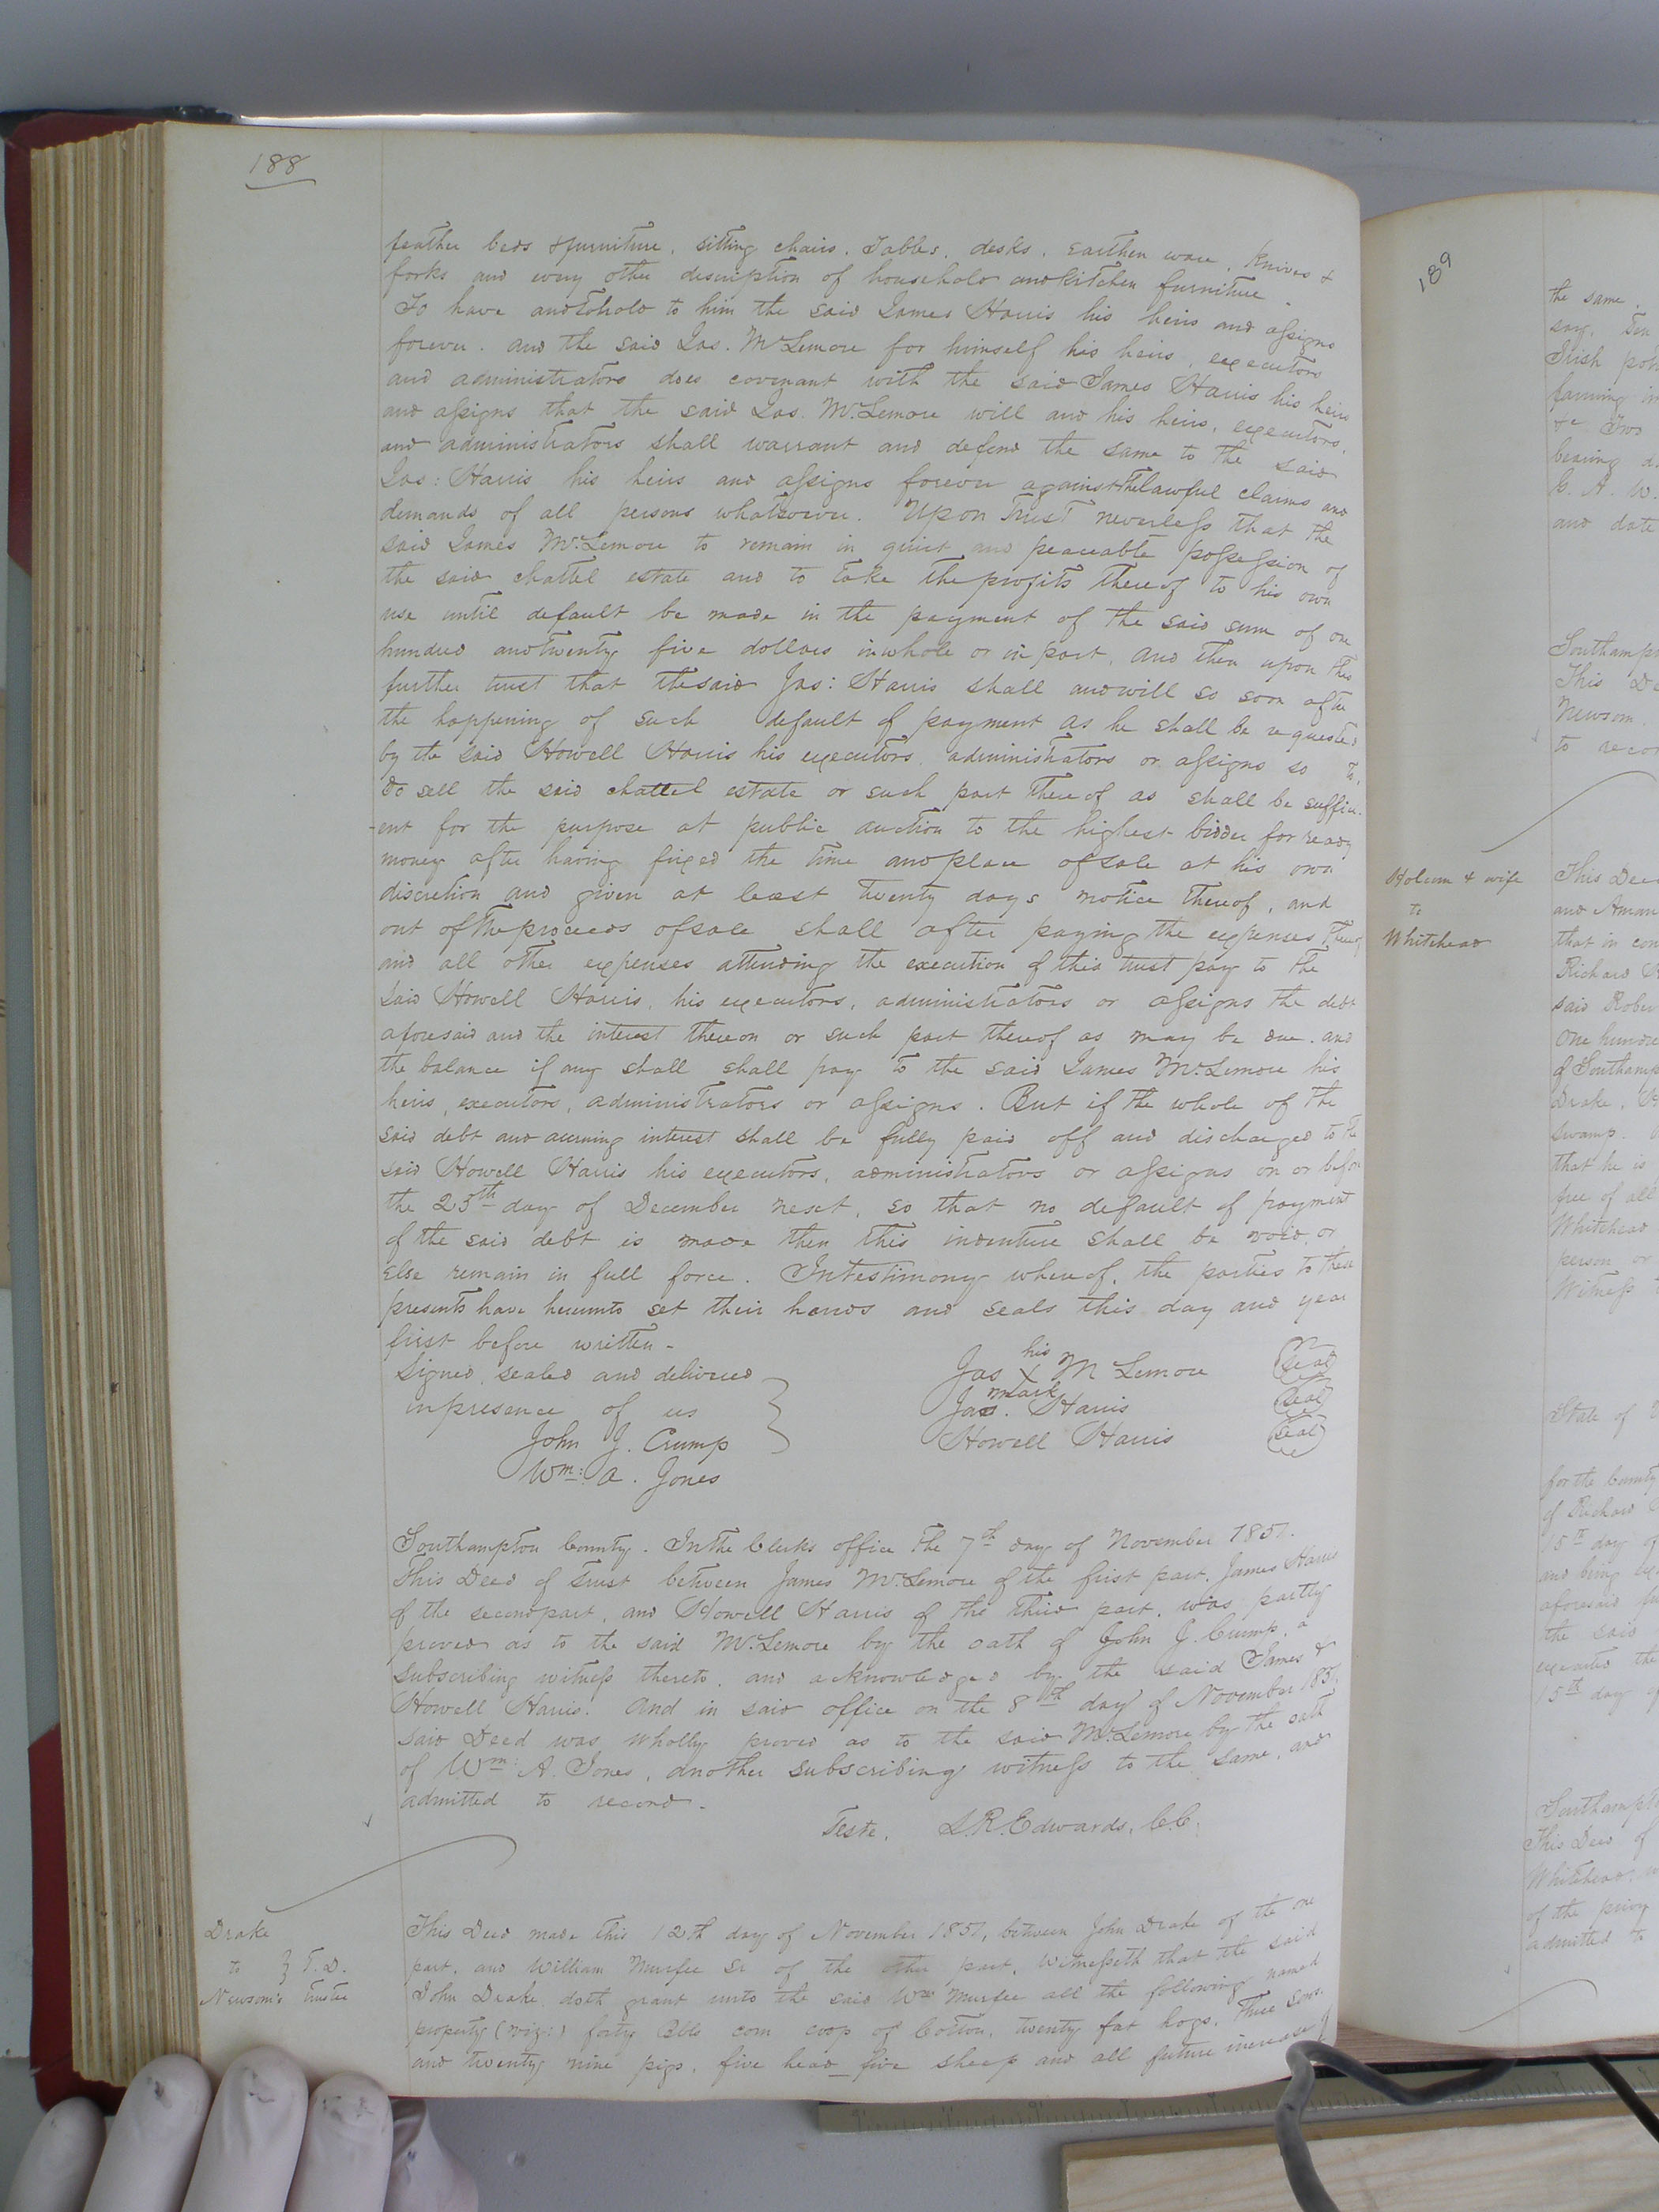 188
feather beds & furniture, sitting chairs, Tables, desks, Earthen ware, Knives &
forks and every other description of household and kitchen furniture.
To have and to hold to him the said James Harris his heirs and assigns
forever. and the said Jas. McLemore for himself his heirs, executors
and administrators does covenant with the said James Harris his heirs
and assigns that the said Jas. McLemore will and his heirs, executors,
and administrators shall warrant and defend the same to the said
Jas: Harris his heirs and assigns forever against the lawful claims and
demands of all persons whatsoever. Upon Trust neverless that the
said James McLemore to remain in quiet and peaceable possession of
the said chattel estate and to take the profits thereof to his own
use until default be made in the payment of the said sum of one
hundred and twenty five dollars in whole or in part, and then upon this
further trust that the said Jas: Harris shall and will so soon after
the happening of such default of payment as he shall be requested
by the said Howell Harris his executors, administrators or assigns so to,
do sell the said chattel estate or such part thereof as shall be suffici-
-ent for the purpose at public auction to the highest bidder for ready
money after having fixed the time and place of sale at his own
discretion and given at least twenty days notice thereof, and
out of the proceeds of sale shall after paying the expenses thereof
and all other expenses attending the execution of this trust pay to the
said Howell Harris, his executors, administrators or assigns the debt
aforesaid and the interest thereon or such part thereof as may be due. and
the balance if any shall shall pay to the said James McLemore his
heirs, executors, administrators or assigns. But if the whole of the
said debt and accruing interest shall be fully paid off and discharged to the
said Howell Harris his executors, administrators or assigns on or before
the 25th day of December next, so that no default of payment
of the said debt is made then this indenture shall be void, or
Else remain in full force. In testimony whereof, the parties to these
presents have hereunto set their hands and seals this day and year
first before written -
Signed, sealed and delivered
in presence of us
John J. Crump
Wm: A. Jones
his
Jas x McLemore (Seal)
mark
Jas. Harris (Seal)
Howell Harris (Seal)
Southampton County. In the Clerks office the 7th day of November 1851.
This Deed of trust between James McLemore of the first part, James Harris
of the second part, and Howell Harris of the third part, was partly
proved as to the said McLemore by the oath of John J. Crump, a
subscribing witness thereto, and acknowledged by the said James &
Howell Harris. And in said office on the 8th day of November 185
said Deed was wholly proved as to the said McLemore by the oath
of Wm: A. Jones, another subscribing witness to the same, and
admitted to record.
Teste, L.R. Edwards, C.C.
Drake
to } T.D.
Newsom's trustee
This Deed made this 12th day of November 1851, between John Drake of the one
part, and William Murfee Sr of the other part, Witnesseth that the said
John Drake doth grant unto the said Wm Murfee all the following named
property (viz:) forty Bbls corn crop of Cotton, twenty fat hogs, three sows,
and twenty nine pigs, five head five sheep and all future increase of
189
the same.
say,
Irish
farming
&c Two
bearing
and date
Southamp
This De
Newsom.
to recor
Holcum & wife
to
Whitehead
This Dee
and Aman
that in con
Richard
said Rober
One hundre
of Southamp
Drake,
swamp.
that he is
free of all
Whitehead
person or
Witness
State of
for the County
of Richard
15th day of
and being
aforesaid
the said
executed the
15th day of
Southampt
This Deed of
Whitehead,
of the privy
admitted to